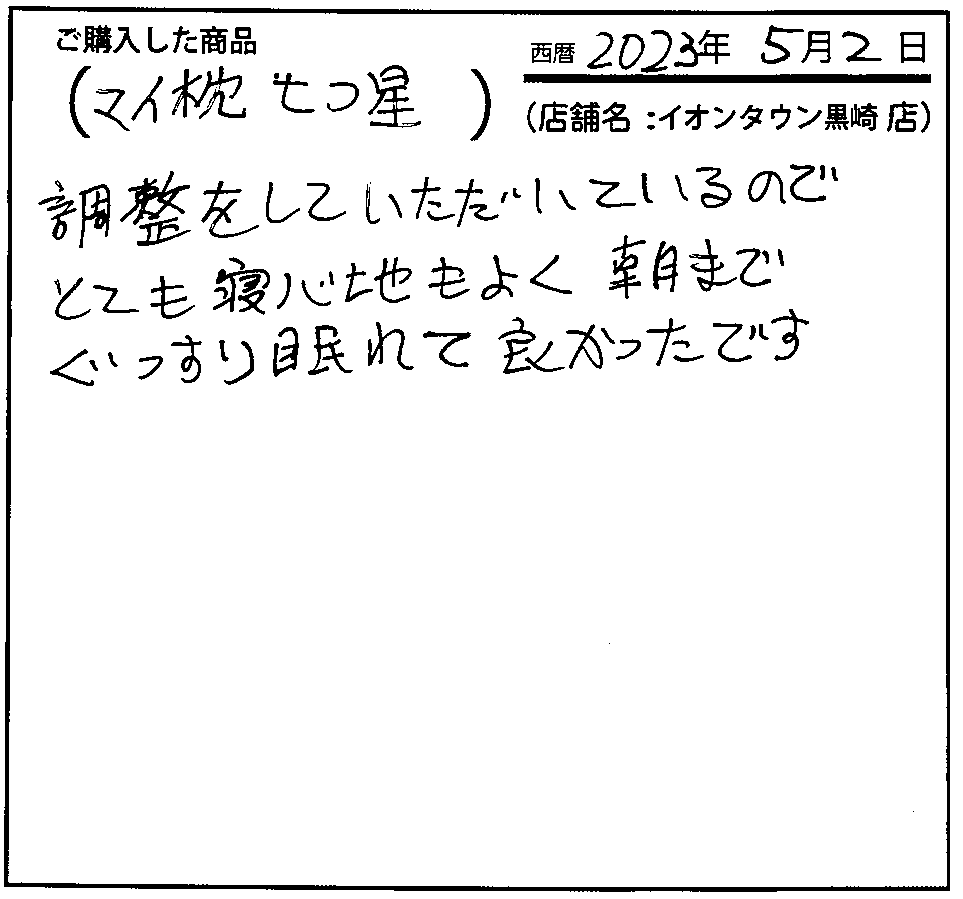 ご購入した商品
西暦 2023年 5月2日
(マイ枕 七つ星 )
(店舗名:イオンタウン黒崎店)
調整をしていただいているので
とても寝心地もよく 朝まで
ぐっすり眠れて良かったです